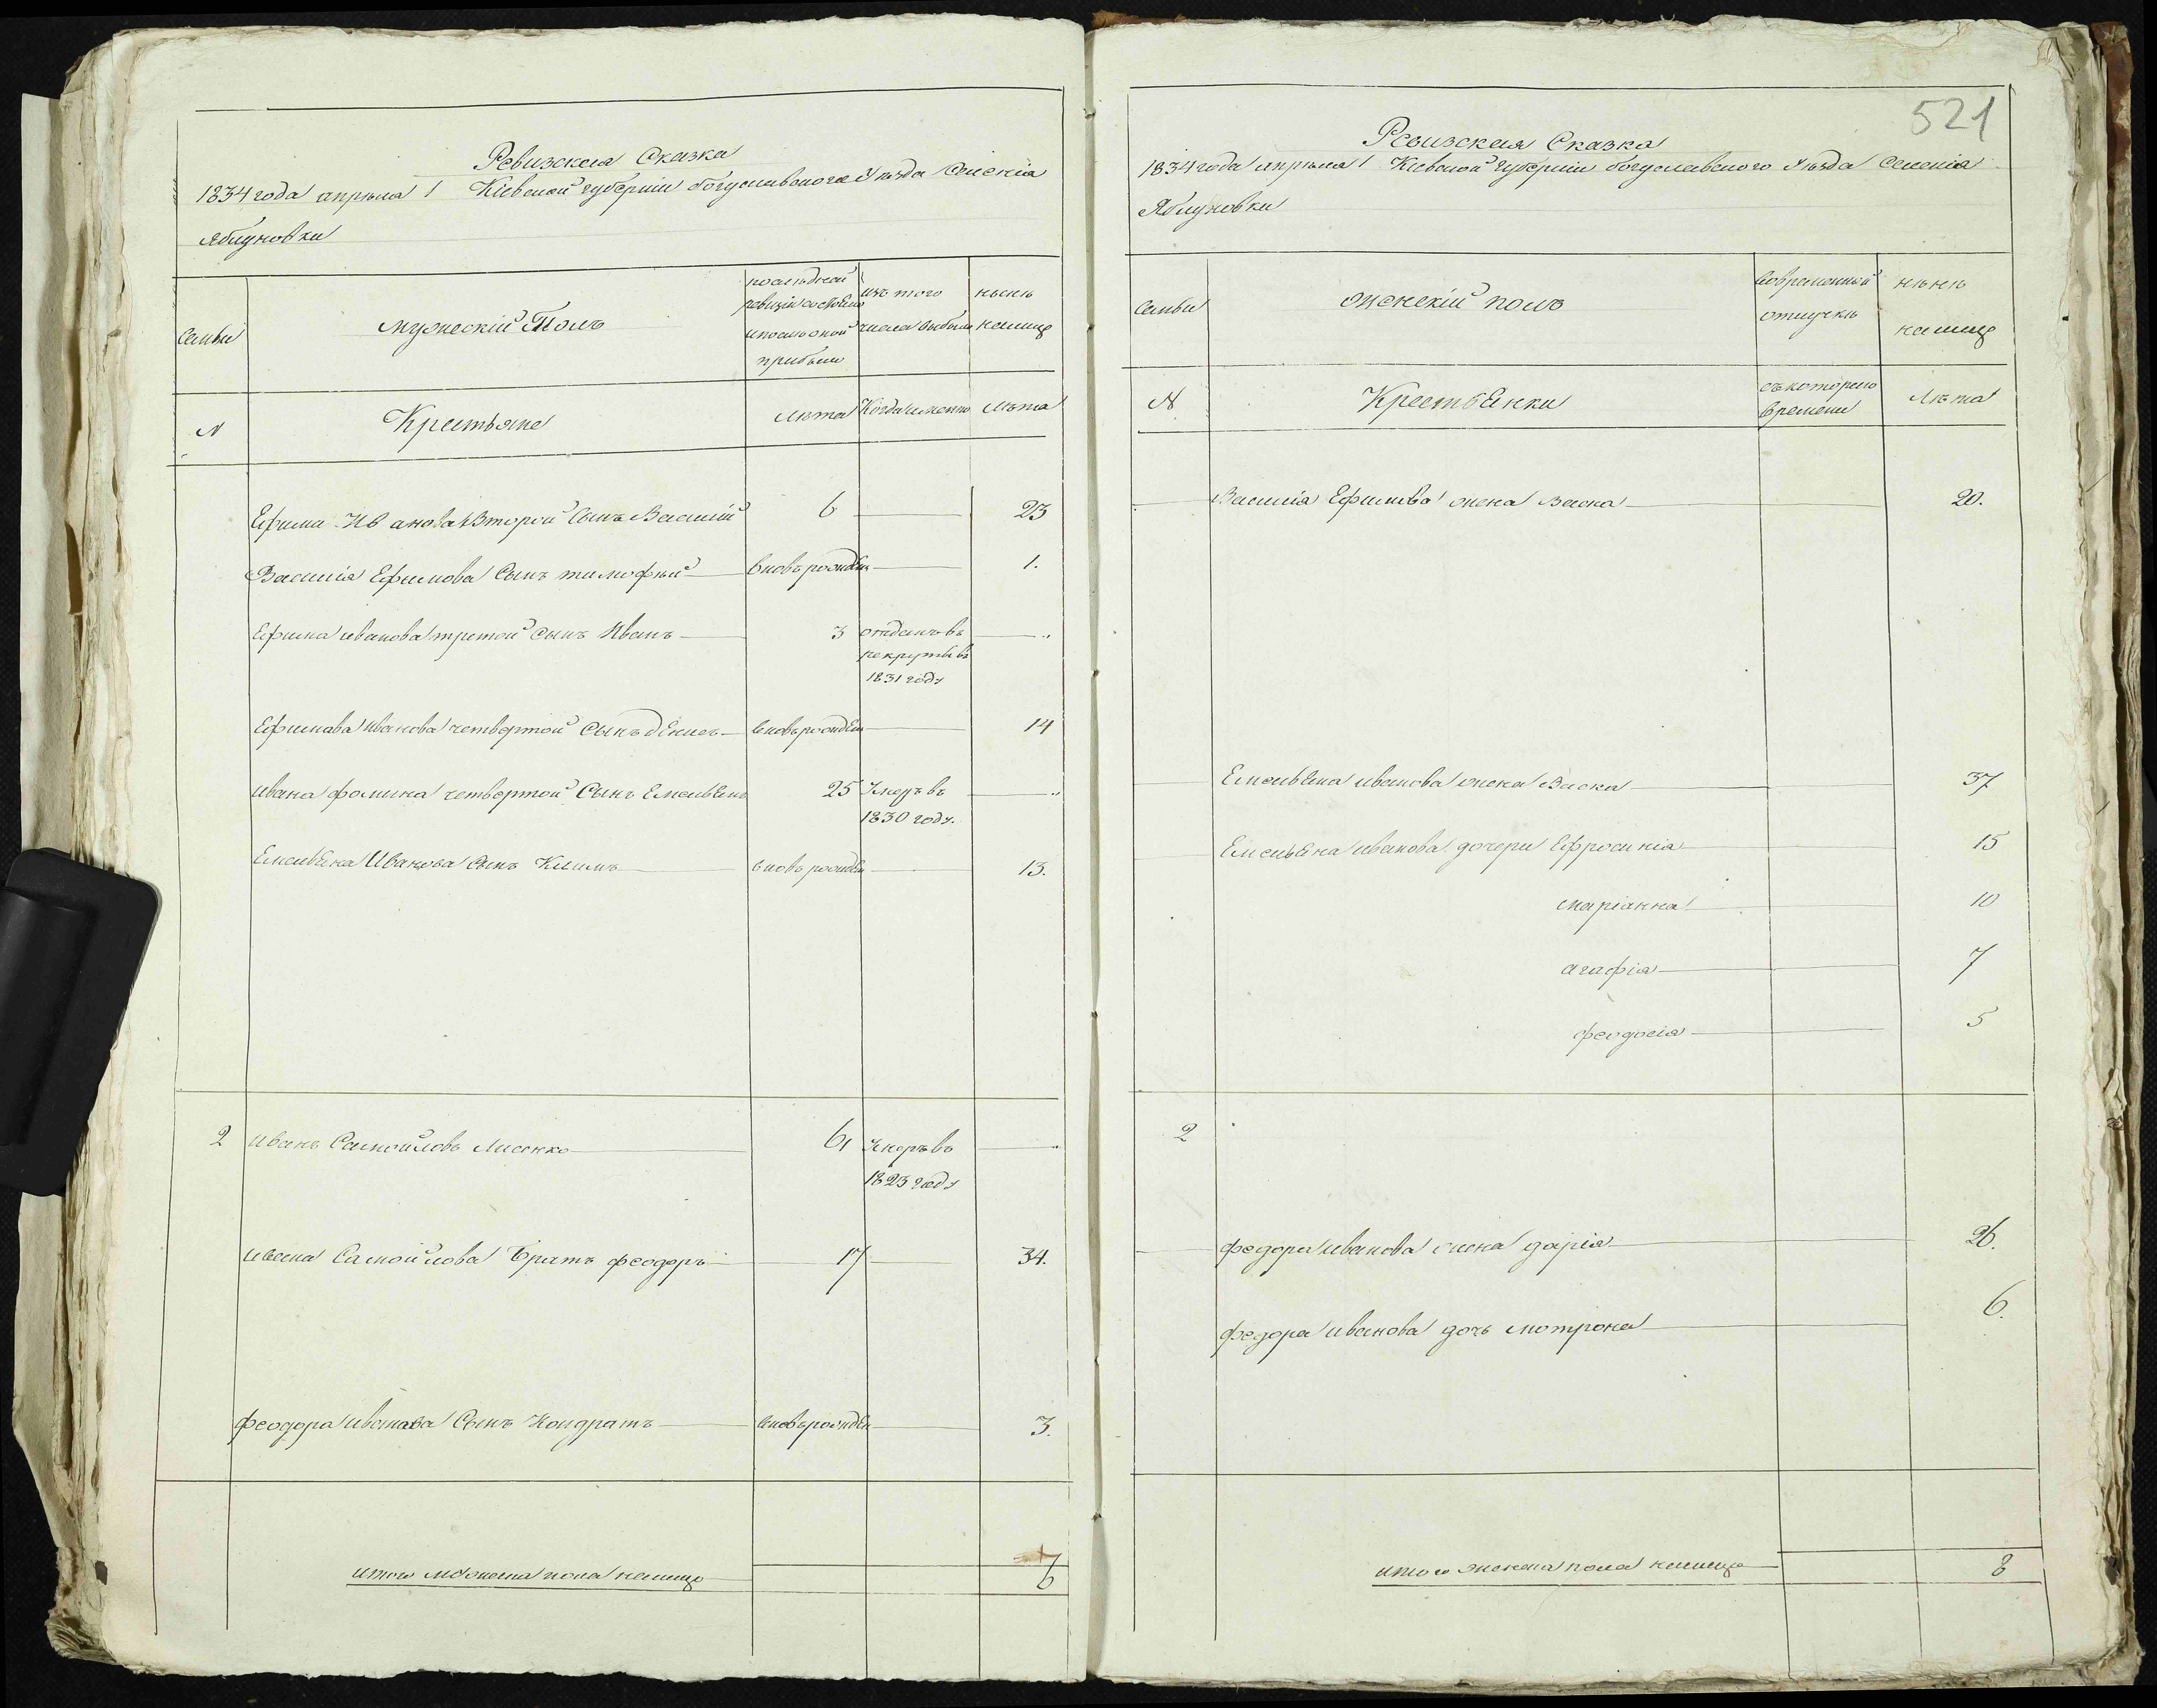 Ревизская Сказка
1834 года апреля 1 Кіевской губерніи богуславского Уезда Селенія
Яблуновки
Семьи
мужескій Полъ
последней
ревизіи состояло
и после оной
прибыло
изъ того
числа выбыло
ныне
налицо
N
Крестьяне
Лета
Когда именно
Лета
Ефима Иванова Второй Сынъ Василій 6 23
Василія Ефимова Сынъ тимофей вновь рожден 1.
Ефима иванова третой сынъ Иванъ 3 отданъ въ
рекруты въ
1831 году
Ефимава иванова четвертой Сынъ денисъ вновь рожден 14
ивана фомина четвертой Сынъ Емельянъ 25 Умеръ въ
1830 году.
Емельяна Иванова Сынъ Климъ вновь рожден 13.
2 иванъ Самойловъ Лисенко 61 Умеръ въ
1823 году
ивана Самойлова Братъ феодоръ 17 34.
феодора иванова Сынъ Кондратъ вновь рожден 3.
итого мужеска пола налицо 6
521
Ревизская Сказка
1834 года апреля 1 Кіевской Губерніи богуславского Уезда Селенія
Яблуновки
Семьи
женскій полъ
во временной
отлучке
ныне
налицо
N
Крестьянки
съ которого
времени
Лета
Василія Ефимова жена Васка 20.
Емельяна иванова жена Васка 37
Емельяна иванова дочери Ефросинія 15
маріанна 10
агафія 7
феодосія 5
2
федора иванова жена дарія 26.
федора иванова дочь мотрона 6.
итого женска пола налицо 8